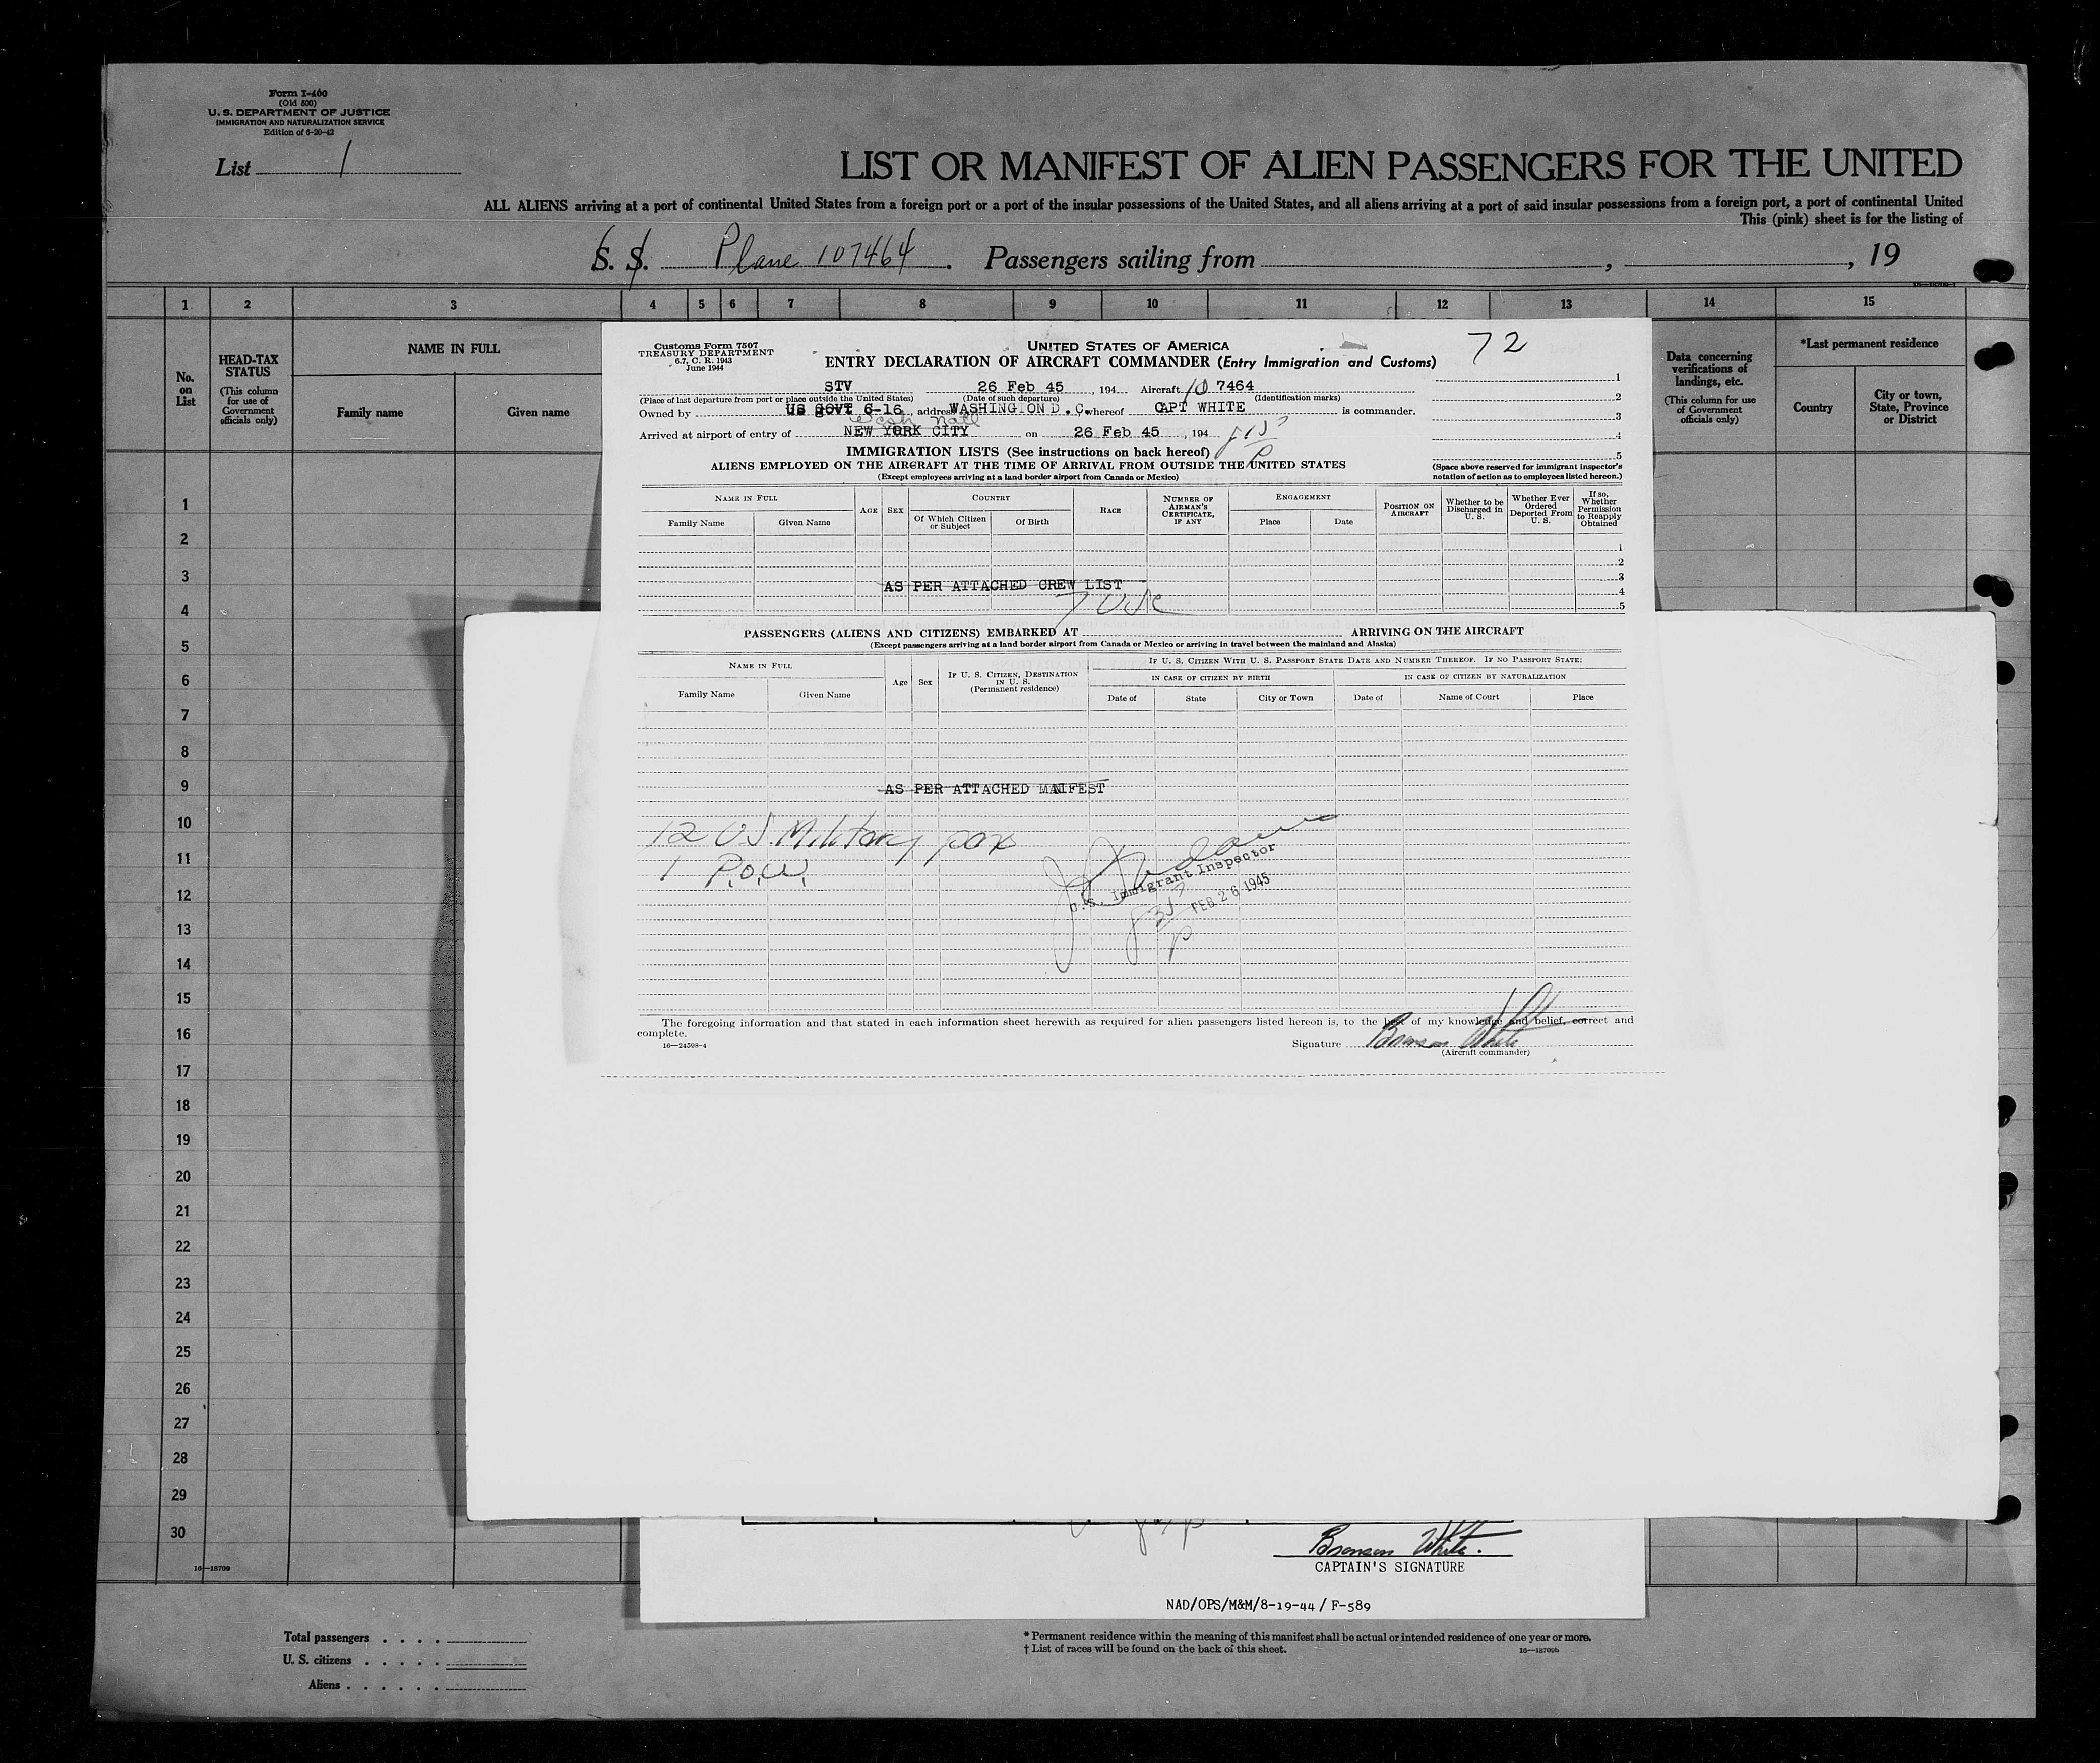 Form I-400
(Old 500)
U. S. DEPARTMENT OF JUSTICE
IMMIGRATION AND NATURALIZATION SERVICE
Edition of 6-20-42
List 1
LIST OR MANIFEST OF ALIEN PASSENGERS FOR THE UNITED
ALL ALIENS arriving at a port of continental United States from a foreign port or a port of the insular possessions of the United States, and all aliens arriving at a port of said insular possessions from a foreign port, a port of continental United
This (pink) sheet is for the listing of
S. S. Plane 107464. Passengers sailing from , , 19
1 2 3 4 5 6 7 8 9 10 11 12 13 14 15
No. on List
HEAD-TAX STATUS
(This column for use of Government officials only)
NAME IN FULL
Family name Given name
Data concerning verifications of landings, etc.
(This column for use of Government officials only)
*Last permanent residence
Country
City or town, State, Province or District
Customs Form 7507
TREASURY DEPARTMENT
6.7, C. R. 1943
June 1944
UNITED STATES OF AMERICA
72
ENTRY DECLARATION OF AIRCRAFT COMMANDER (Entry Immigration and Customs)
STV 26 Feb 45, 194 Aircraft 10 7464
(Place of last departure from port or place outside the United States) (Date of such departure) (Identification marks)
Owned by US GOVT C-16, address WASHINGTON D.C. whereof CAPT WHITE is commander.
Wash Natl
Arrived at airport of entry of NEW YORK CITY on 26 Feb 45, 194
1
2
3
4
5
IMMIGRATION LISTS (See instructions on back hereof)
ALIENS EMPLOYED ON THE AIRCRAFT AT THE TIME OF ARRIVAL FROM OUTSIDE THE UNITED STATES
(Except employees arriving at a land border airport from Canada or Mexico)
(Space above reserved for immigrant inspector's notation of action as to employees listed hereon.)
NAME IN FULL
Family Name Given Name
AGE SEX
COUNTRY
Of Which Citizen or Subject Of Birth
RACE
NUMBER OF AIRMAN'S CERTIFICATE, IF ANY
ENGAGEMENT
Place Date
POSITION ON AIRCRAFT
Whether to be Discharged in U. S.
Whether Ever Ordered Deported From U. S.
If so, Whether Permission to Reapply Obtained
1
2
3
4
5
AS PER ATTACHED CREW LIST
7 USC
PASSENGERS (ALIENS AND CITIZENS) EMBARKED AT ARRIVING ON THE AIRCRAFT
(Except passengers arriving at a land border airport from Canada or Mexico or arriving in travel between the mainland and Alaska)
NAME IN FULL
Family Name Given Name
Age Sex
IF U. S. CITIZEN, DESTINATION IN U. S.
(Permanent residence)
IF U. S. CITIZEN WITH U. S. PASSPORT STATE DATE AND NUMBER THEREOF. IF NO PASSPORT STATE:
IN CASE OF CITIZEN BY BIRTH IN CASE OF CITIZEN BY NATURALIZATION
Date of State City or Town Date of Name of Court Place
AS PER ATTACHED MANIFEST
12 U.S. Military pax
1 P.O.W.
U.S. Immigrant Inspector
FEB 26 1945
The foregoing information and that stated in each information sheet herewith as required for alien passengers listed hereon is, to the best of my knowledge and belief, correct and
complete.
16—24598-4
Signature Bronson White
(Aircraft commander)
1
2
3
4
5
6
7
8
9
10
11
12
13
14
15
16
17
18
19
20
21
22
23
24
25
26
27
28
29
30
16—18709
Bronson White.
CAPTAIN'S SIGNATURE
NAD/OPS/M&M/8-19-44 / F-589
Total passengers
U. S. citizens
Aliens
* Permanent residence within the meaning of this manifest shall be actual or intended residence of one year or more.
† List of races will be found on the back of this sheet.
16—18709b